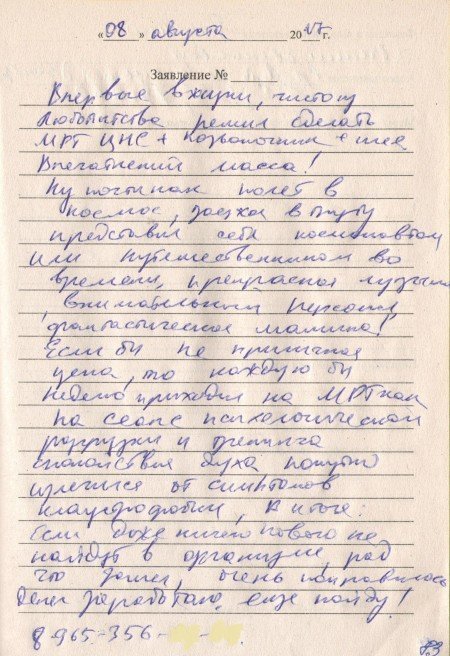 «08» августа 2017 г.
Заявление №
Впервые в жизни, чистому
любопытства решил сделать
МРТ ЦНС + позвоночник + шея
Впечатлений масса!
Ну почти как полет в
космос, заезжая в трубу
представил себя космонавтом
или путешественником во
времени, прекрасная музыка
, внимательный персонал,
фантастическая машина!
Если бы не приличная
цена, то каждую бы
неделю приходил на МРТ как
на сеанс психологической
разгрузки и тренинга
спокойствия духа попутно
излечился от симптомов
клаустрофобии, в итоге:
Если даже ничего нового не
найдут в организме, рад
что зашел, очень понравилось
Денег заработаю, еще пойду!
8-965-356-
83